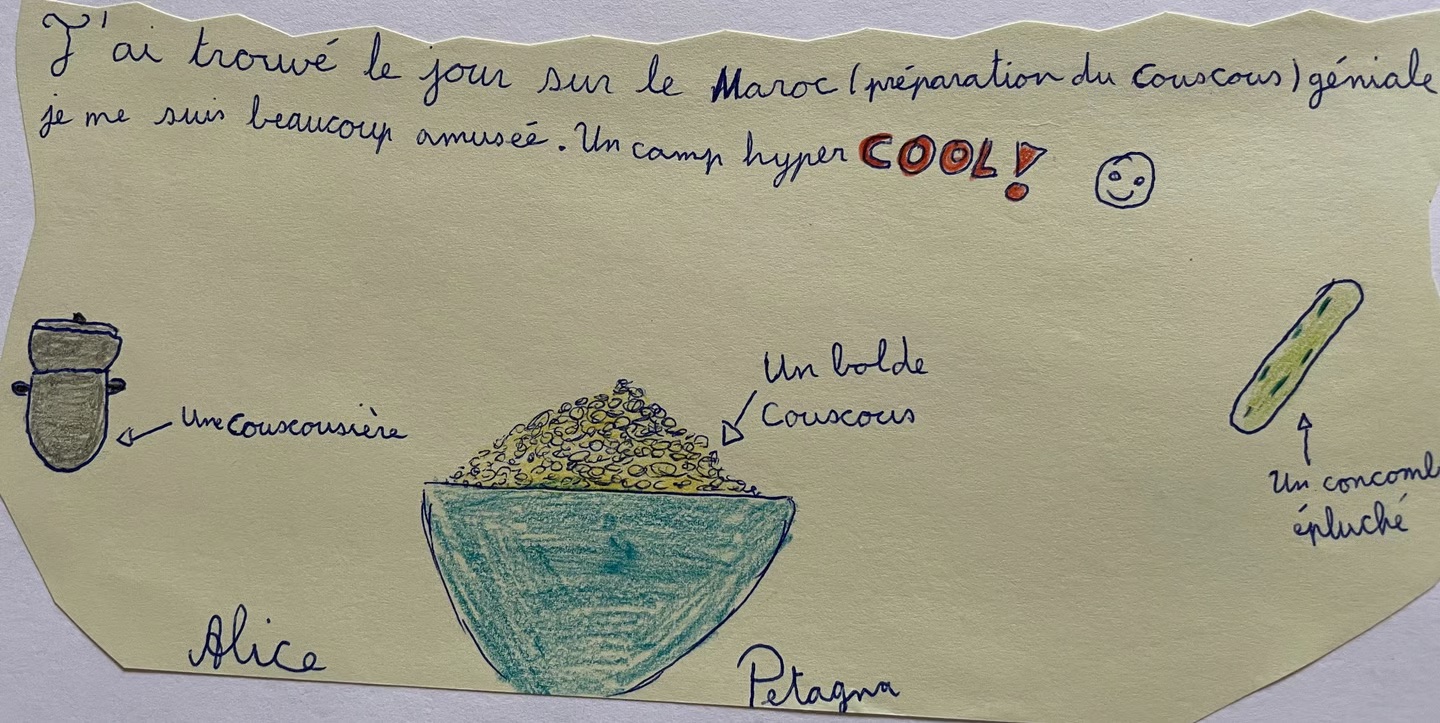 J'ai trouvé le jour sur le Maroc (préparation du couscous) géniale
je me suis beaucoup amuséé. Un camp hyper COOL!
Un bol de
couscous
Une couscousière
Un concomb
épluché
Alice
Petagna